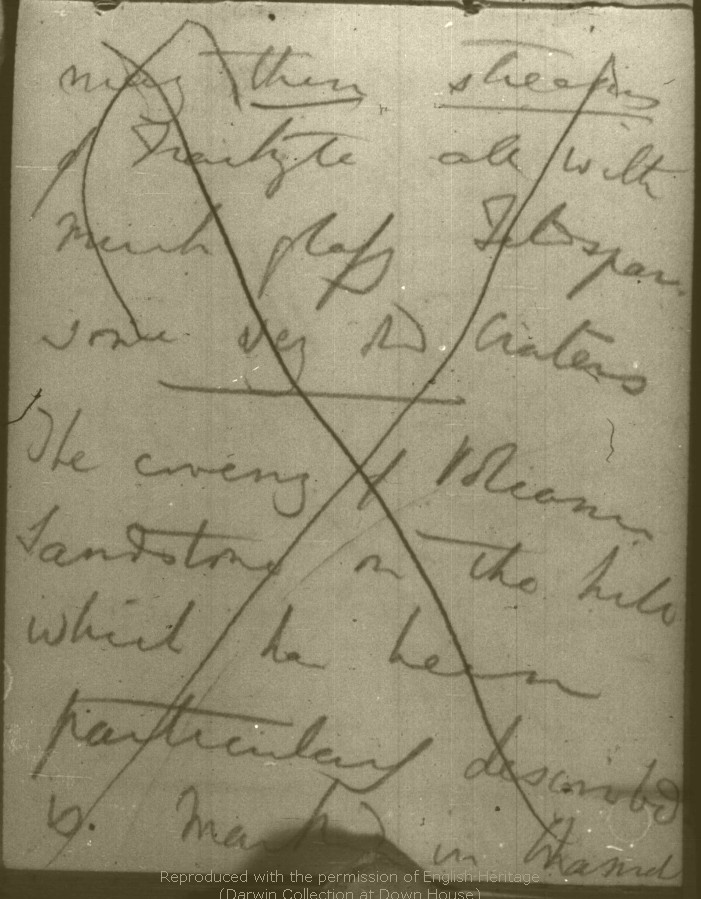 many thin streams
of Trachyte all with
much glassy Feldspar.
some very old Craters
The covering of Volcanic
Sandstone on the hill
which has been
particularly described
is marked in
Reproduced with the permission of English Heritage
(Darwin Collection at Down House)